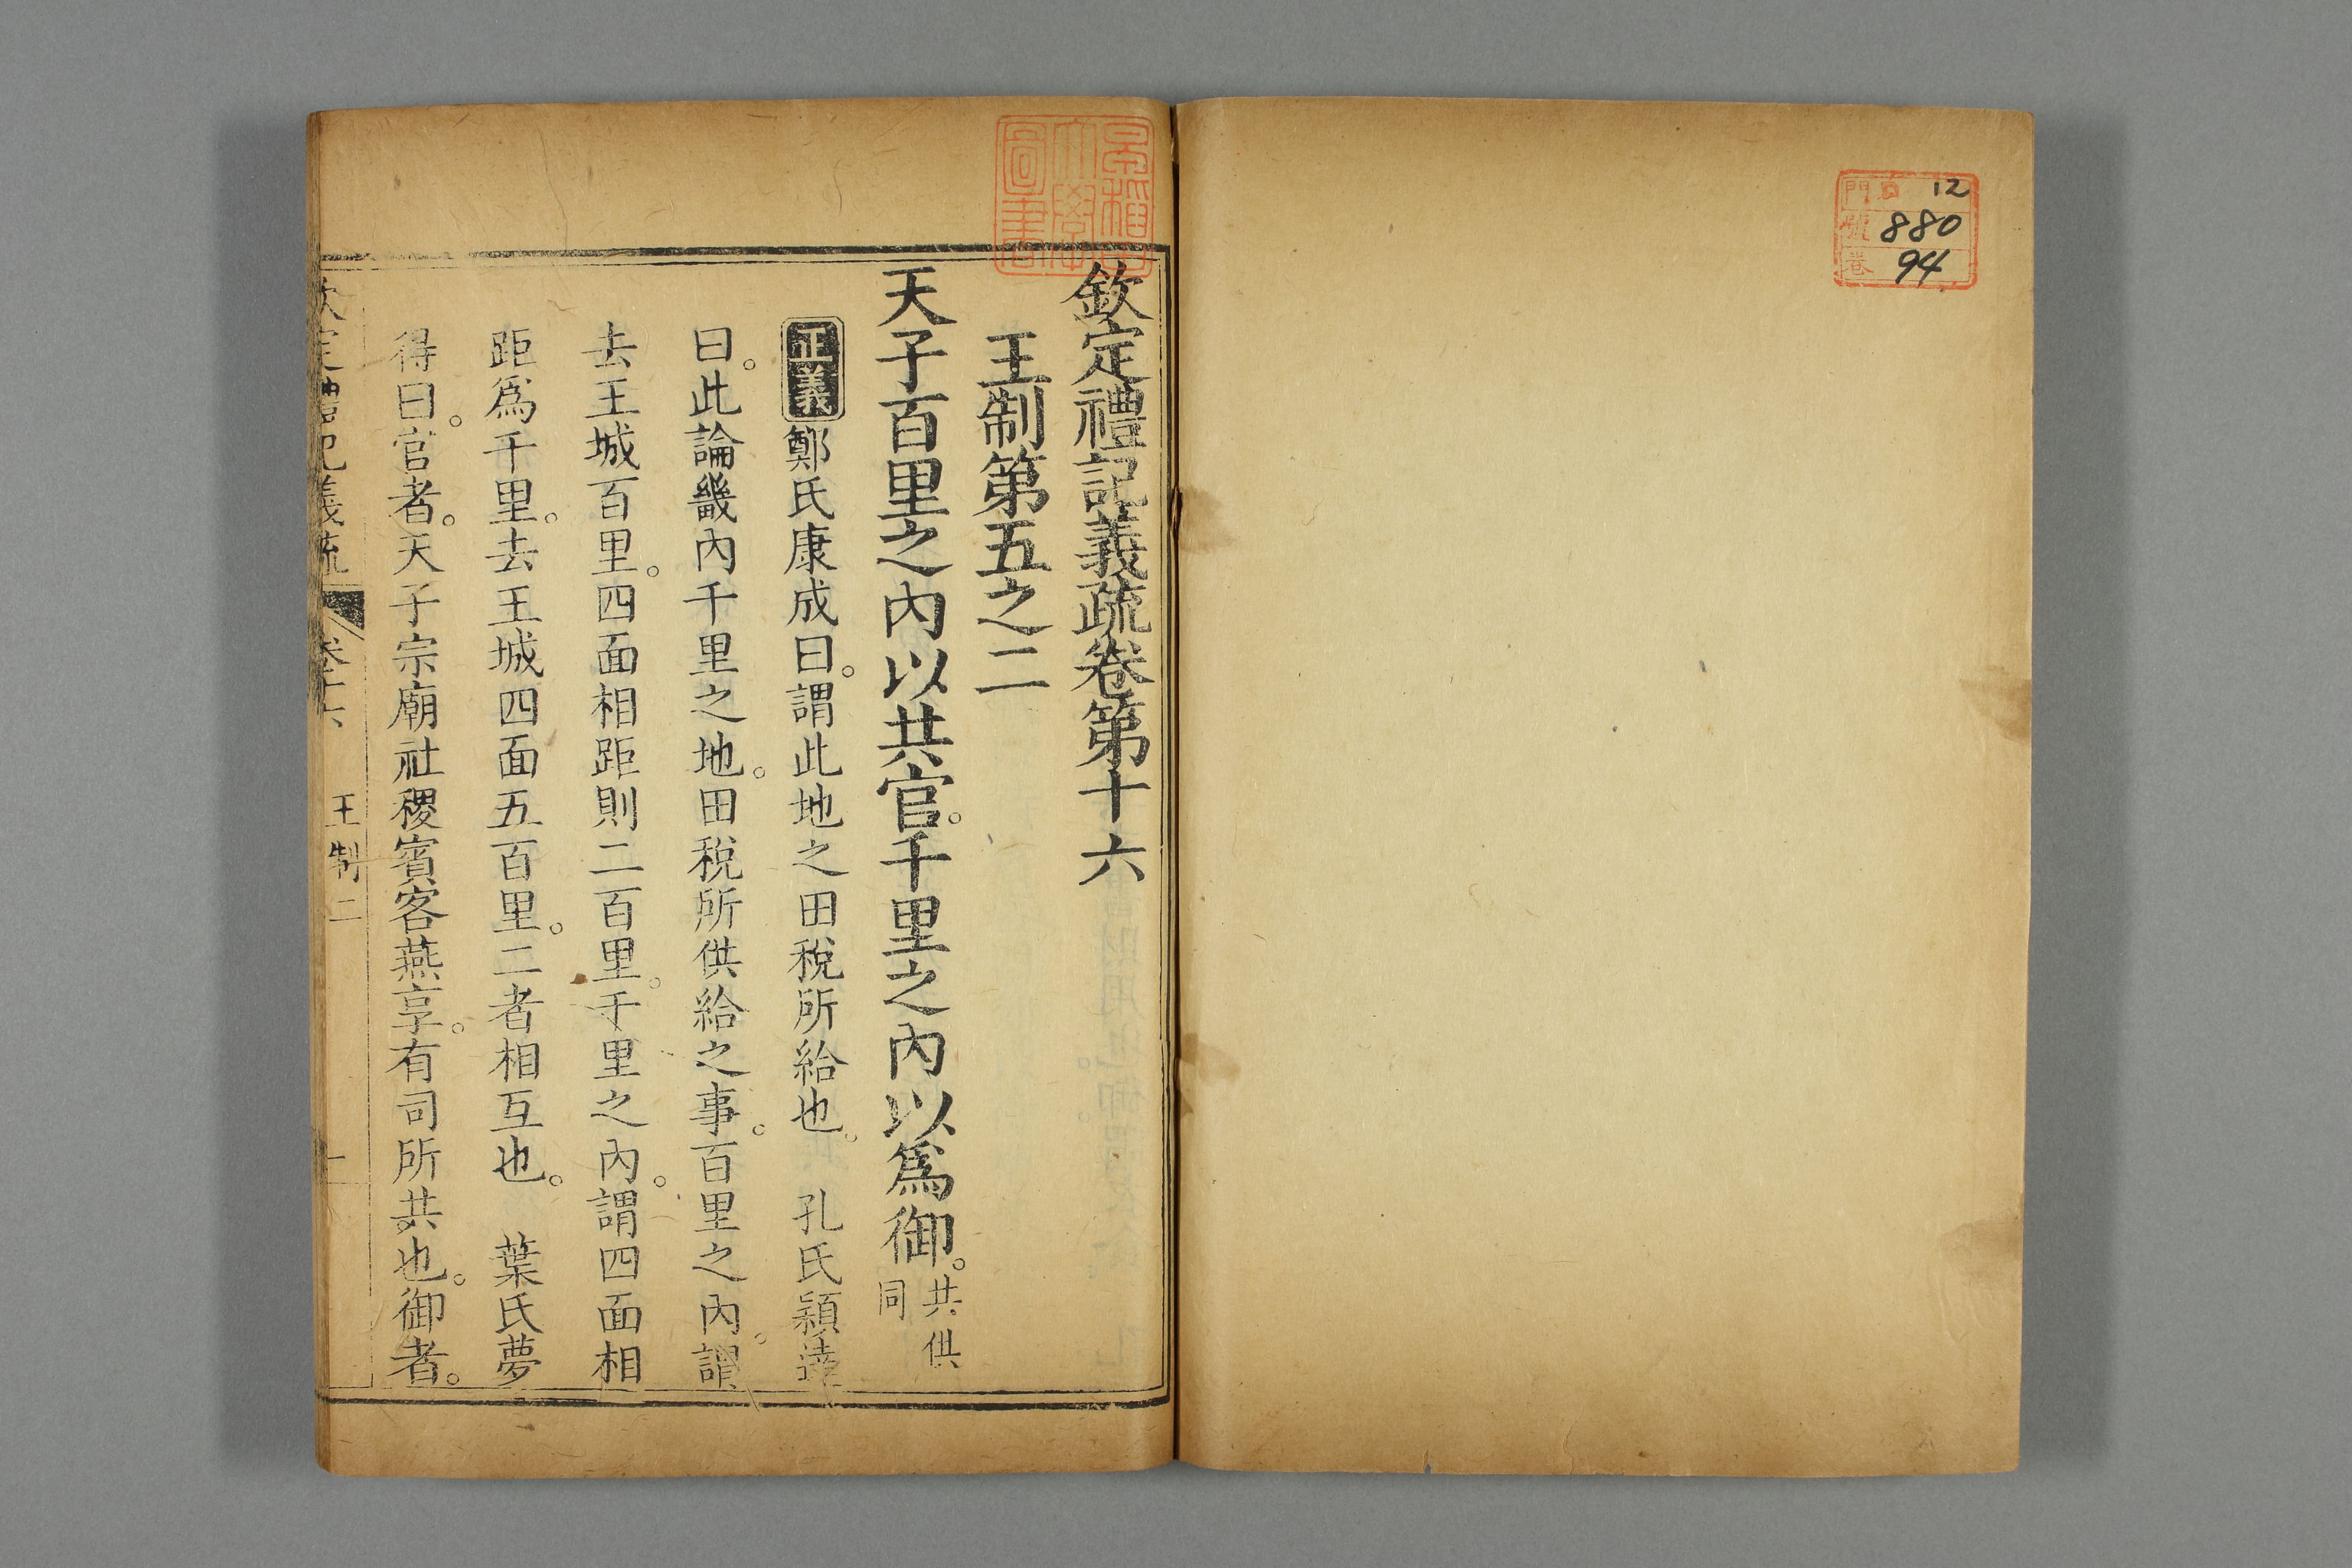 門 口 12
號 880
卷 94
早稻田
大學
圖書
欽定禮記義疏卷第十六
王制第五之二
天子百里之內以共官。千里之內以爲御。共供同
正義 鄭氏康成曰。謂此地之田稅所給也。 孔氏穎達
曰。此論畿內千里之地。田稅所供給之事。百里之內。謂
去王城百里。四面相距則二百里。千里之內。謂四面相
距爲千里。去王城四面五百里。二者相互也。 葉氏夢
得曰。官者。天子宗廟社稷賓客燕享。有司所共也。御者。
欽定禮記義疏 卷十六 王制二 一